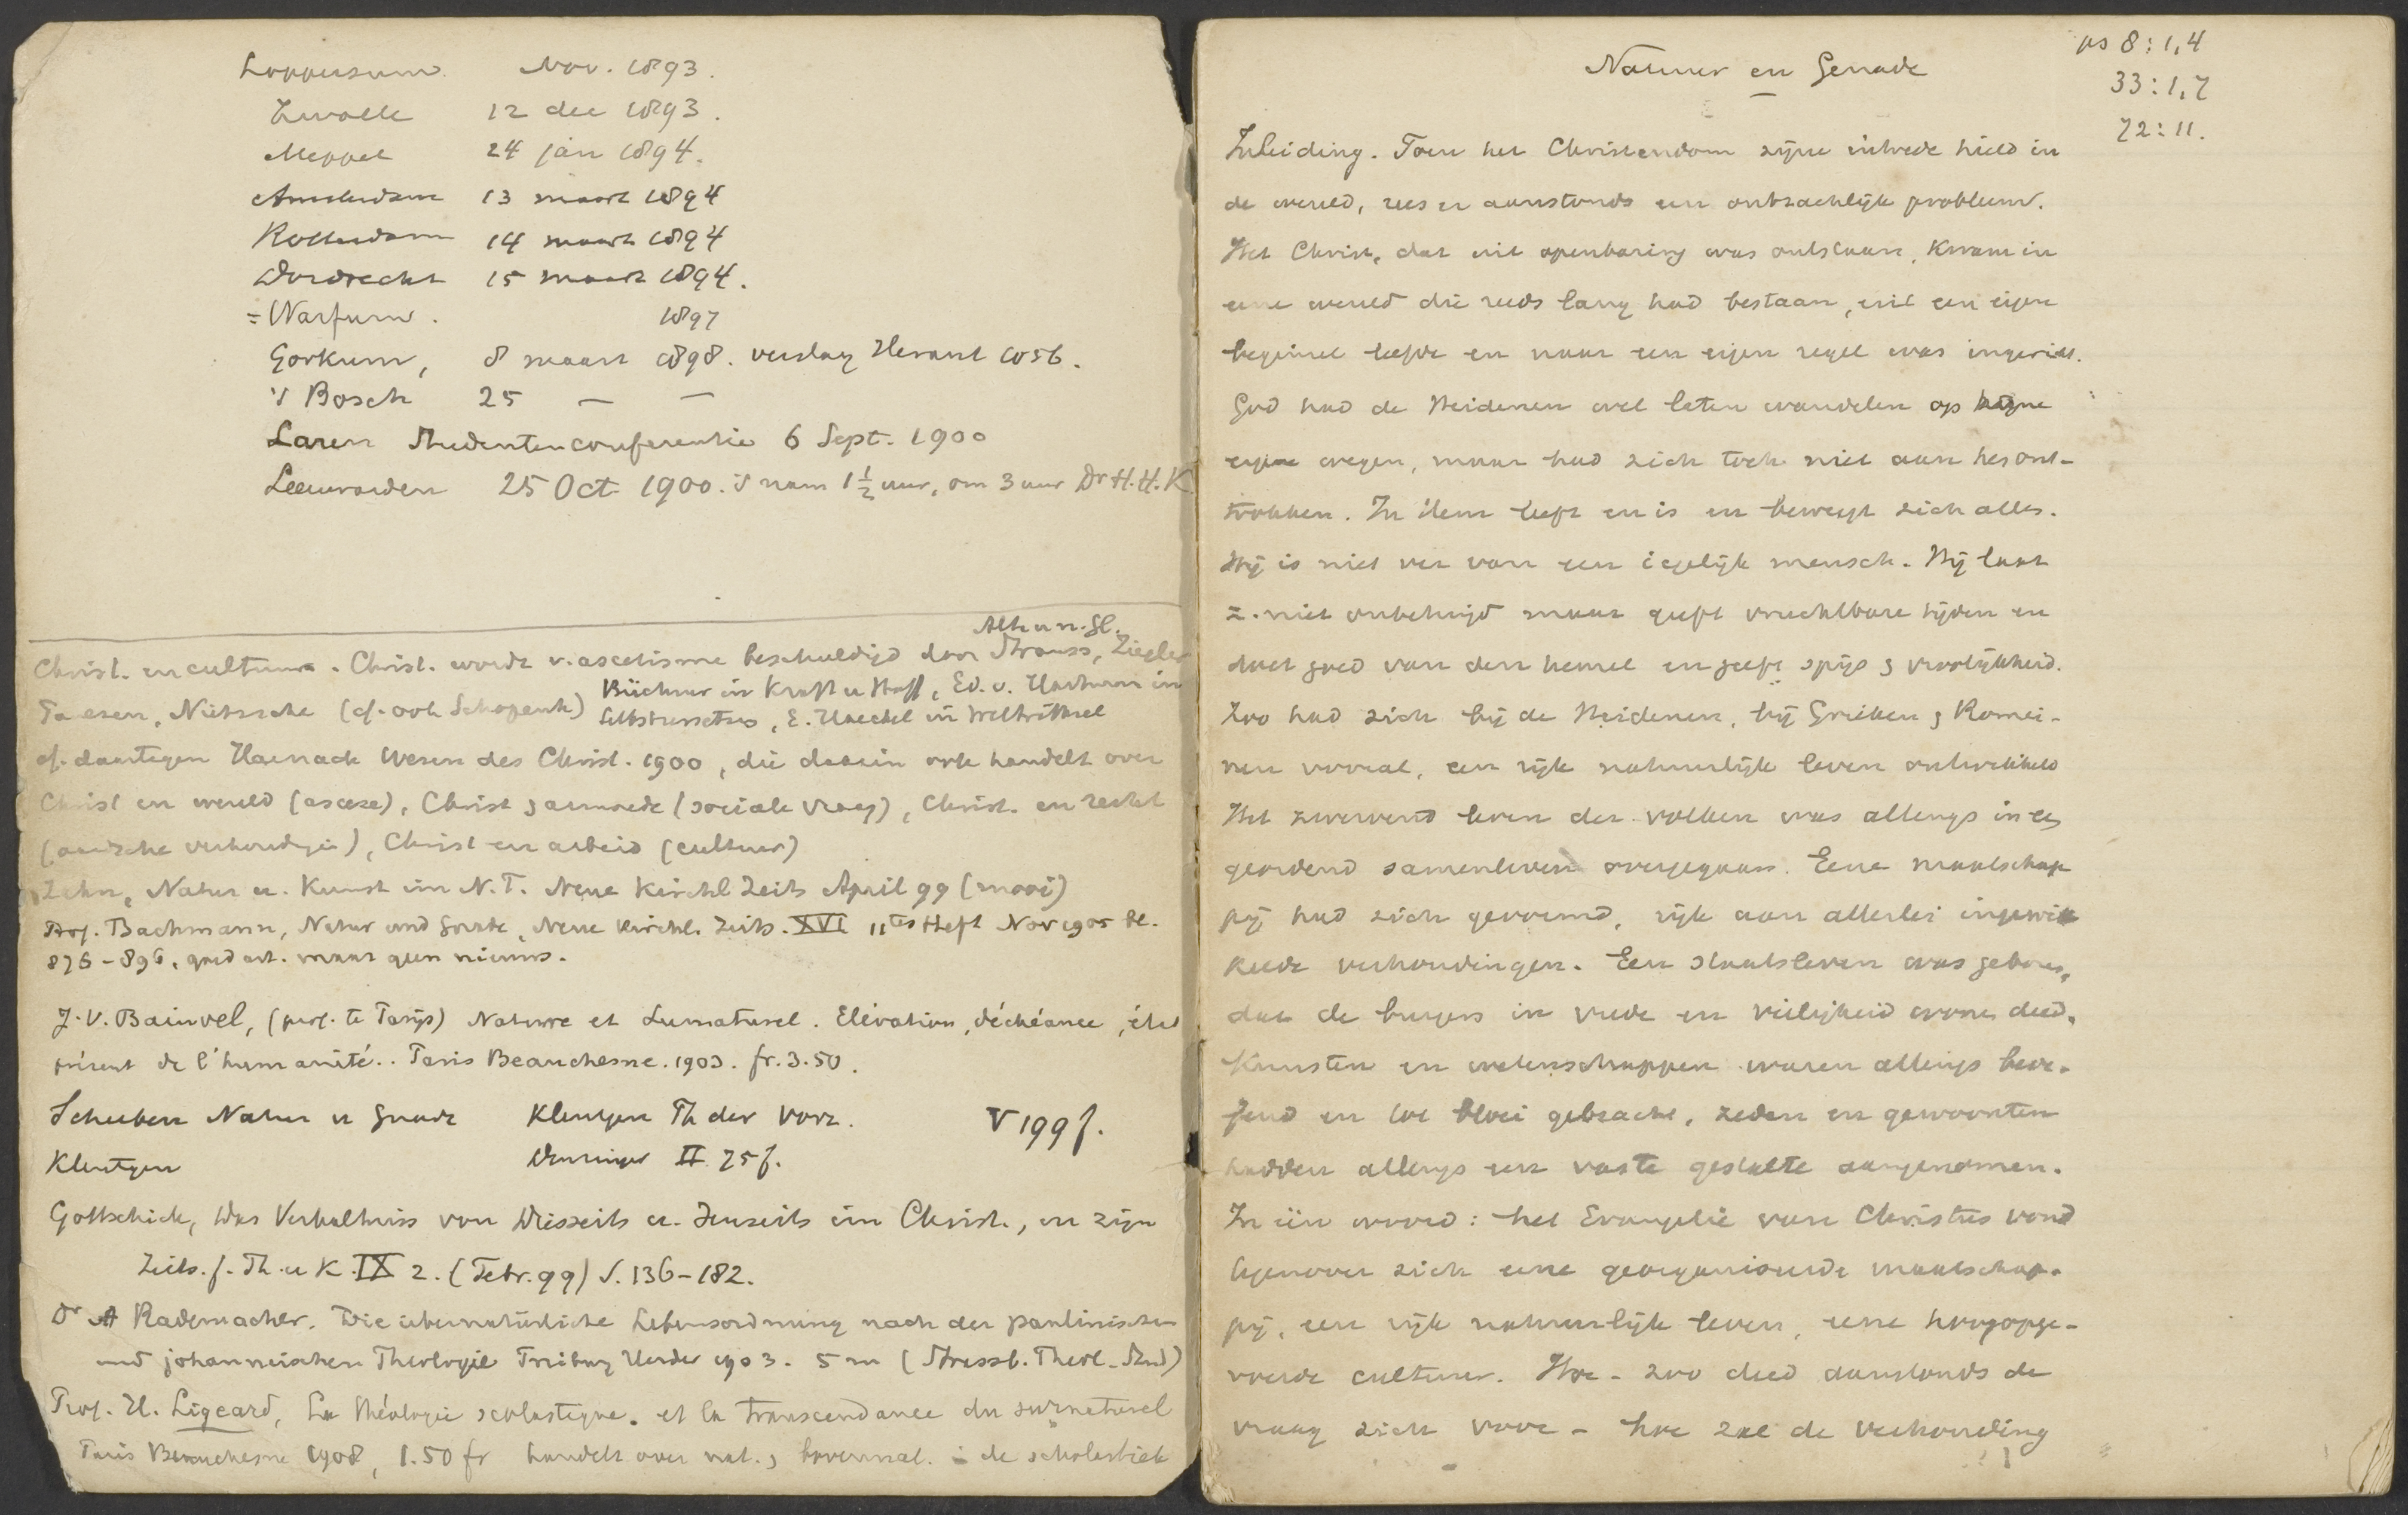 Loppersum. Nov. 1893.
Zwolle 12 dec 1893.
Meppel 24 jan 1894.
Amsterdam 13 maart 1894
Rotterdam 14 maart 1894
Dordrecht 15 maart 1894.
= Warfum. 1897
Gorkum, 8 maart 1898. verslag Heraut 1056.
's Bosch 25 — —
Laren Studentenconferentie 6 Sept. 1900
Leeuwarden 25 Oct. 1900. 's nam 1½ uur, om 3 uur Dr H. H. K.
Christ. en cultuur. Christ. wordt v. ascetisme beschuldigd door Strauss, Ziegler
Paulsen, Nietzsche (cf. ook Schopenh) Büchner in Kraft u Stoff, Ed. v. Hartmann in
Selbstzersetzung, E. Haeckel in Welträthsel
cf. daartegen Harnack Wesen des Christ. 1900, die daarin ook handelt over
Christ en wereld (ascese), Christ & armoede (sociale vraag), Christ. en recht
(aardsche verhoudgn), Christ en arbeid (cultuur)
Zahn, Natur u. Kunst im N.T. Neue Kirchl Zeits April 99 (mooi)
Prof. Bachmann, Natur und Gnade, Neue Kirchl. Zeits. XVI 11tes Heft Nov 1905 bl.
876-896, goed art. maar geen nieuws.
J. V. Bainvel, (prof. te Parijs) Nature et Surnaturel. Elévation, déchéance, état
présent de l'humanité.. Paris Beauchesne. 1903. fr. 3.50.
Scheeben Natur u Gnade Kleutgen Th der Vorz. V 199 f.
Kleutgen Denzinger II 75 f.
Gottschick, Das Verhältniss von Diesseits u. Jenseits im Christ., in zijn
Zeits. f. Th. u K. IX 2. (Febr. 99) S. 136-182.
Dr A Rademacher. Die übernatürliche Lebensordnung nach der paulinischen
und johanneischen Theologie Freiburg Herder 1903. 5 m (Strassb. Theol. Stud)
Prof. H. Ligeard, La théologie scolastique. et la transcendance du surnaturel
Paris Beauchesne 1908, 1.50 fr handelt over nat. & bovennat. in de scholastiek
ps 8:1,4
33:1,7
72:11.
Natuur en Genade
Inleiding. Toen het Christendom zijne intrede hield in
de wereld, rees er aanstonds een ontzachlijk probleem.
Het Christ, dat uit openbaring was ontstaan, kwam in
eene wereld die reeds lang had bestaan, uit een eigen
beginsel leefde en naar een eigen regel was ingericht.
God had de Heidenen wel laten wandelen op
eigene wegen, maar had zich toch niet aan hen ont-
trokken. In Hem leeft en is en beweegt zich alles.
Hij is niet ver van een iegelijk mensch. Hij laat
z. niet onbetuigd maar geeft vruchtbare tijden en
doet goed van den hemel en geeft spijs & vroolijkheid.
Zoo had zich bij de Heidenen, bij Grieken & Romei-
nen vooral, een rijk natuurlijk leven ontwikkeld
Het zwervend leven der volken was allengs in een
geordend samenleven overgegaan. Eene maatschap
pij had zich gevormd, rijk aan allerlei ingewik
kelde verhoudingen. Een staatsleven was geboren,
dat de burgers in vrede en veiligheid wonen deed.
Kunsten en wetenschappen waren allengs beoe-
fend en tot bloei gebracht, zeden en gewoonten
hadden allengs een vaste gestalte aangenomen.
In één woord: het Evangelie van Christus vond
tegenover zich eene georganiseerde maatschap-
pij, een rijk natuurlijk leven, eene hoogopge-
voerde cultuur. Hoe - zoo deed aanstonds de
vraag zich voor - hoe zal de verhouding